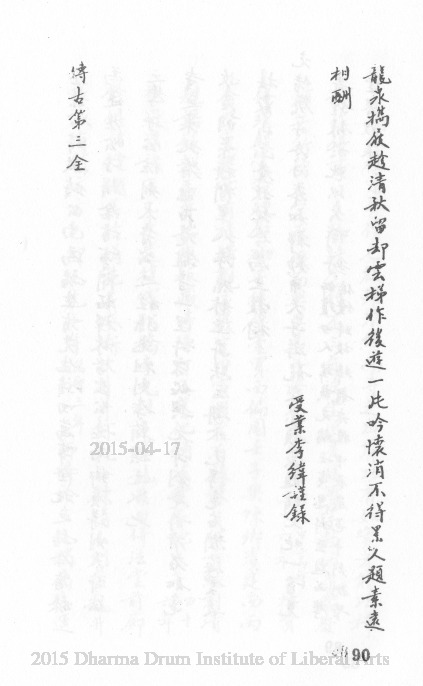 龍泉攜屐趁清秋留却雲梯作後遊一片吟懷消不得累人題素遠
相酬
受業李緯謹錄
傳古第三全
2015-04-17
90
2015 Dharma Drum Institute of Liberal Arts